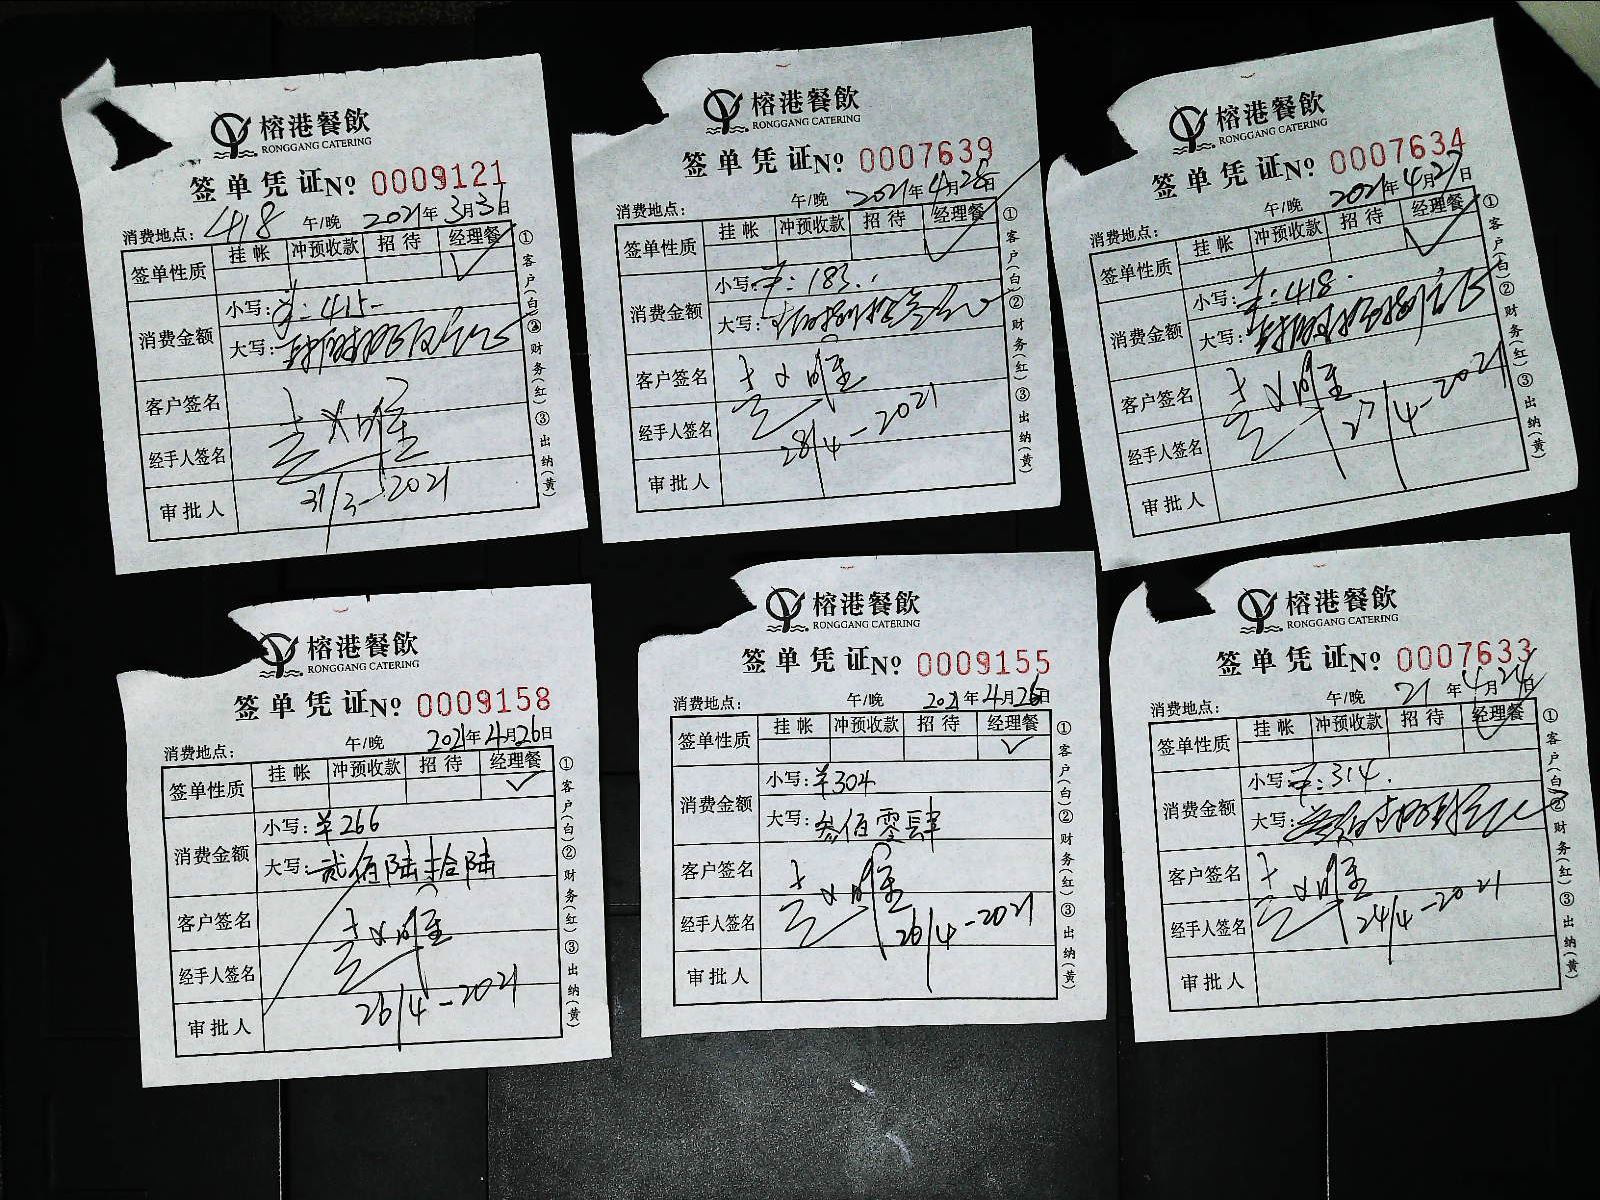 榕港餐飲
RONGGANG CATERING
签单凭证№ 0009121
消费地点: 418 午/晚 2021年3月31日
签单性质 挂帐 冲预收款 招待 经理餐
✓
消费金额 小写: ¥:415-
大写:
客户签名
经手人签名
31/3-2021
审批人
①客户(白)②财务(红)③出纳(黄)
榕港餐飲
RONGGANG CATERING
签单凭证№ 0007639
消费地点: 午/晚 2021年4月28日
签单性质 挂帐 冲预收款 招待 经理餐
✓
消费金额 小写: ¥:183.
大写:
客户签名
经手人签名
28/4-2021
审批人
①客户(白)②财务(红)③出纳(黄)
榕港餐飲
RONGGANG CATERING
签单凭证№ 0007634
消费地点: 午/晚 2021年4月27日
签单性质 挂帐 冲预收款 招待 经理餐
✓
消费金额 小写: ¥:418.
大写:
客户签名
经手人签名
27/4-2021
审批人
①客户(白)②财务(红)③出纳(黄)
榕港餐飲
RONGGANG CATERING
签单凭证№ 0009158
消费地点: 午/晚 2021年4月26日
签单性质 挂帐 冲预收款 招待 经理餐
✓
消费金额 小写: ¥266
大写: 贰佰陆拾陆
客户签名
经手人签名
26/4-2021
审批人
①客户(白)②财务(红)③出纳(黄)
榕港餐飲
RONGGANG CATERING
签单凭证№ 0009155
消费地点: 午/晚 2021年4月26日
签单性质 挂帐 冲预收款 招待 经理餐
✓
消费金额 小写: ¥304
大写: 叁佰零肆
客户签名
经手人签名 26/4-2021
审批人
①客户(白)②财务(红)③出纳(黄)
榕港餐飲
RONGGANG CATERING
签单凭证№ 0007633
消费地点: 午/晚 21年4月24日
签单性质 挂帐 冲预收款 招待 经理餐
✓
消费金额 小写: ¥:314.
大写:
客户签名
经手人签名 24/4-2021
审批人
①客户(白)②财务(红)③出纳(黄)